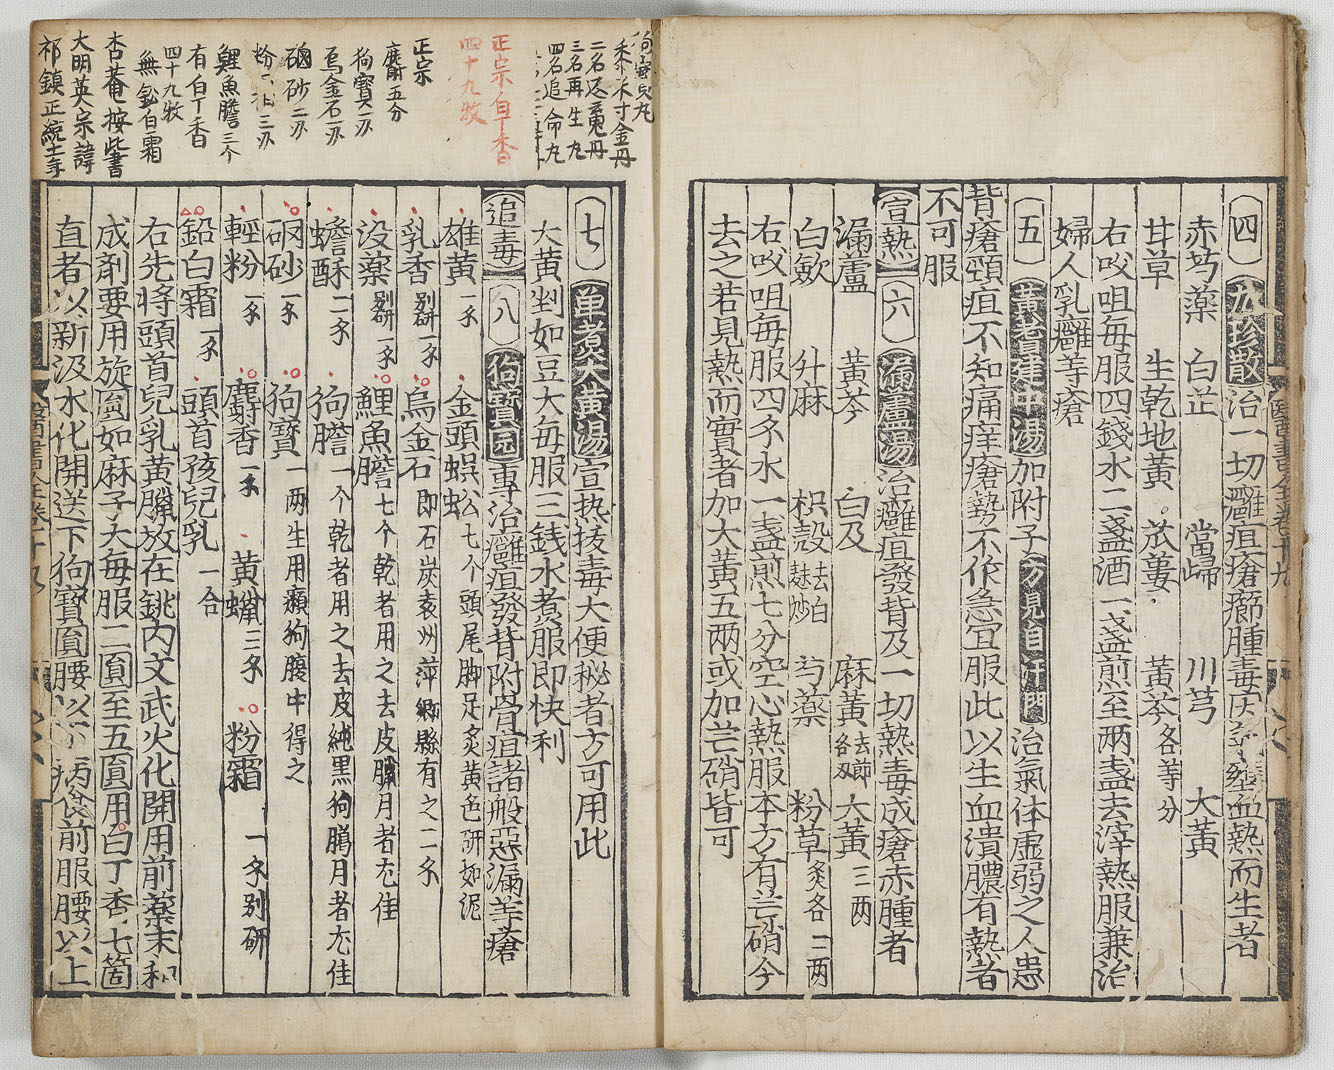 四 九珍散 治一切癰疽瘡癤腫毒因氣壅血熱而生者
赤芍藥 白芷 當歸 川芎 大黃
甘草 生乾地黃 苽蔞 黃芩各等分
右㕮咀每服四錢水二盞酒一盞煎至兩盞去滓熱服兼治
婦人乳癰等瘡
五 黃耆建中湯 加附子 方見自汗門 治氣体虛弱之人患
背瘡頸疽不知痛痒瘡勢不作急宜服此以生血潰膿有熱者
不可服
宣熱 六 漏蘆湯 治癰疽發背及一切熱毒成瘡赤腫者
漏蘆 黃芩 白及 麻黃去節各五 大黃三两
白斂 升麻 枳殼去白麸炒 芍藥 粉草炙各二两
右㕮咀每服四多水一盞煎七分空心熱服本方有芒硝今
去之若見熱而實者加大黃五两或加芒硝皆可
醫書大全卷十九
狗寶丸
二名返魂丹
三名再生丸
四名追命丸
正宗白丁香
四十九牧
正宗
麝五分
狗寶一
烏金石一
硇砂二
粉霜三
鯉魚膽三个
有白丁香
四十九牧
無鉛白霜
杏菴按此書
大明英宗諱
祁鎮正統
七 單煮大黃湯 宣热拔毒大便秘者方可用此
大黃剉如豆大每服三銭水煮服即快利
追毒 八 狗寶圓 專治癰疽發背附骨疽諸般惡漏等瘡
雄黃一 金頭蜈蚣七个頭尾脚足炙黃色研如泥
乳香別研一 烏金石即石炭袁州萍鄉縣有之二
没藥別研一 鯉魚膽七个乾者用之去皮臘月者尤佳
蟾酥二 狗膽一个乾者用之去皮純黒狗臈月者尤佳
硇砂一 狗寶一两生用癩狗腹中得之
輕粉一 麝香一 黃蠟三 粉霜一 別研
鉛白霜一 頭首孩兒乳一合
右先將頭首兒乳黃臘放在銚内文武火化開用前藥末和
成剤要用旋圓如麻子大每服二圓至五圓用白丁香七箇
直者以新汲水化開送下狗寶圓腰以下病食前服腰以上